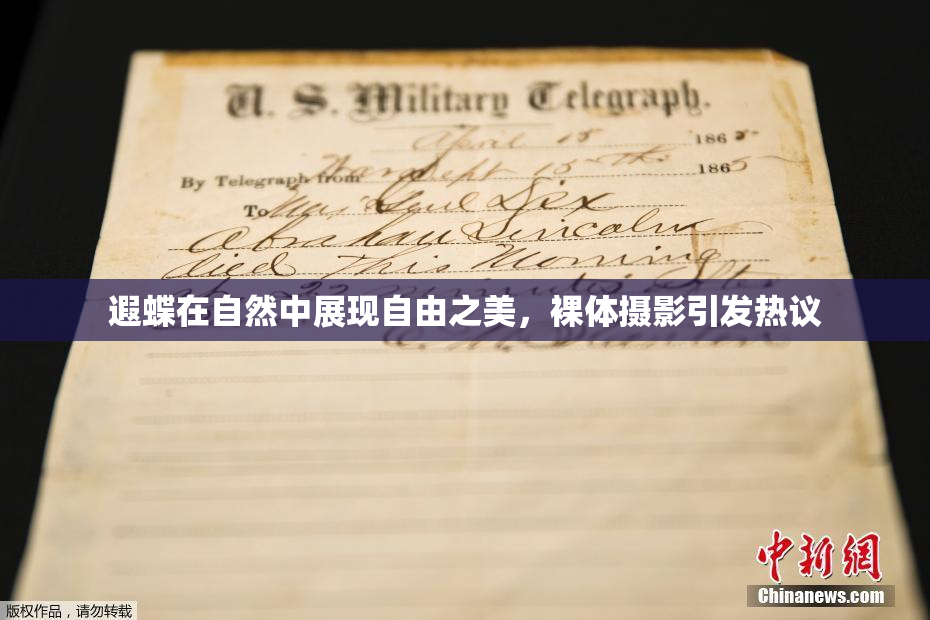 U. S. Military Telegraph.
April 15 1865
By Telegraph from War Dept 15th 1865
To Maj Genl Dix
Abraham Lincoln
died This Morning
22 minutes after
遐蝶在自然中展现自由之美，裸体摄影引发热议
E. M. Stanton
中新網
Chinanews.com
版权作品，请勿转载